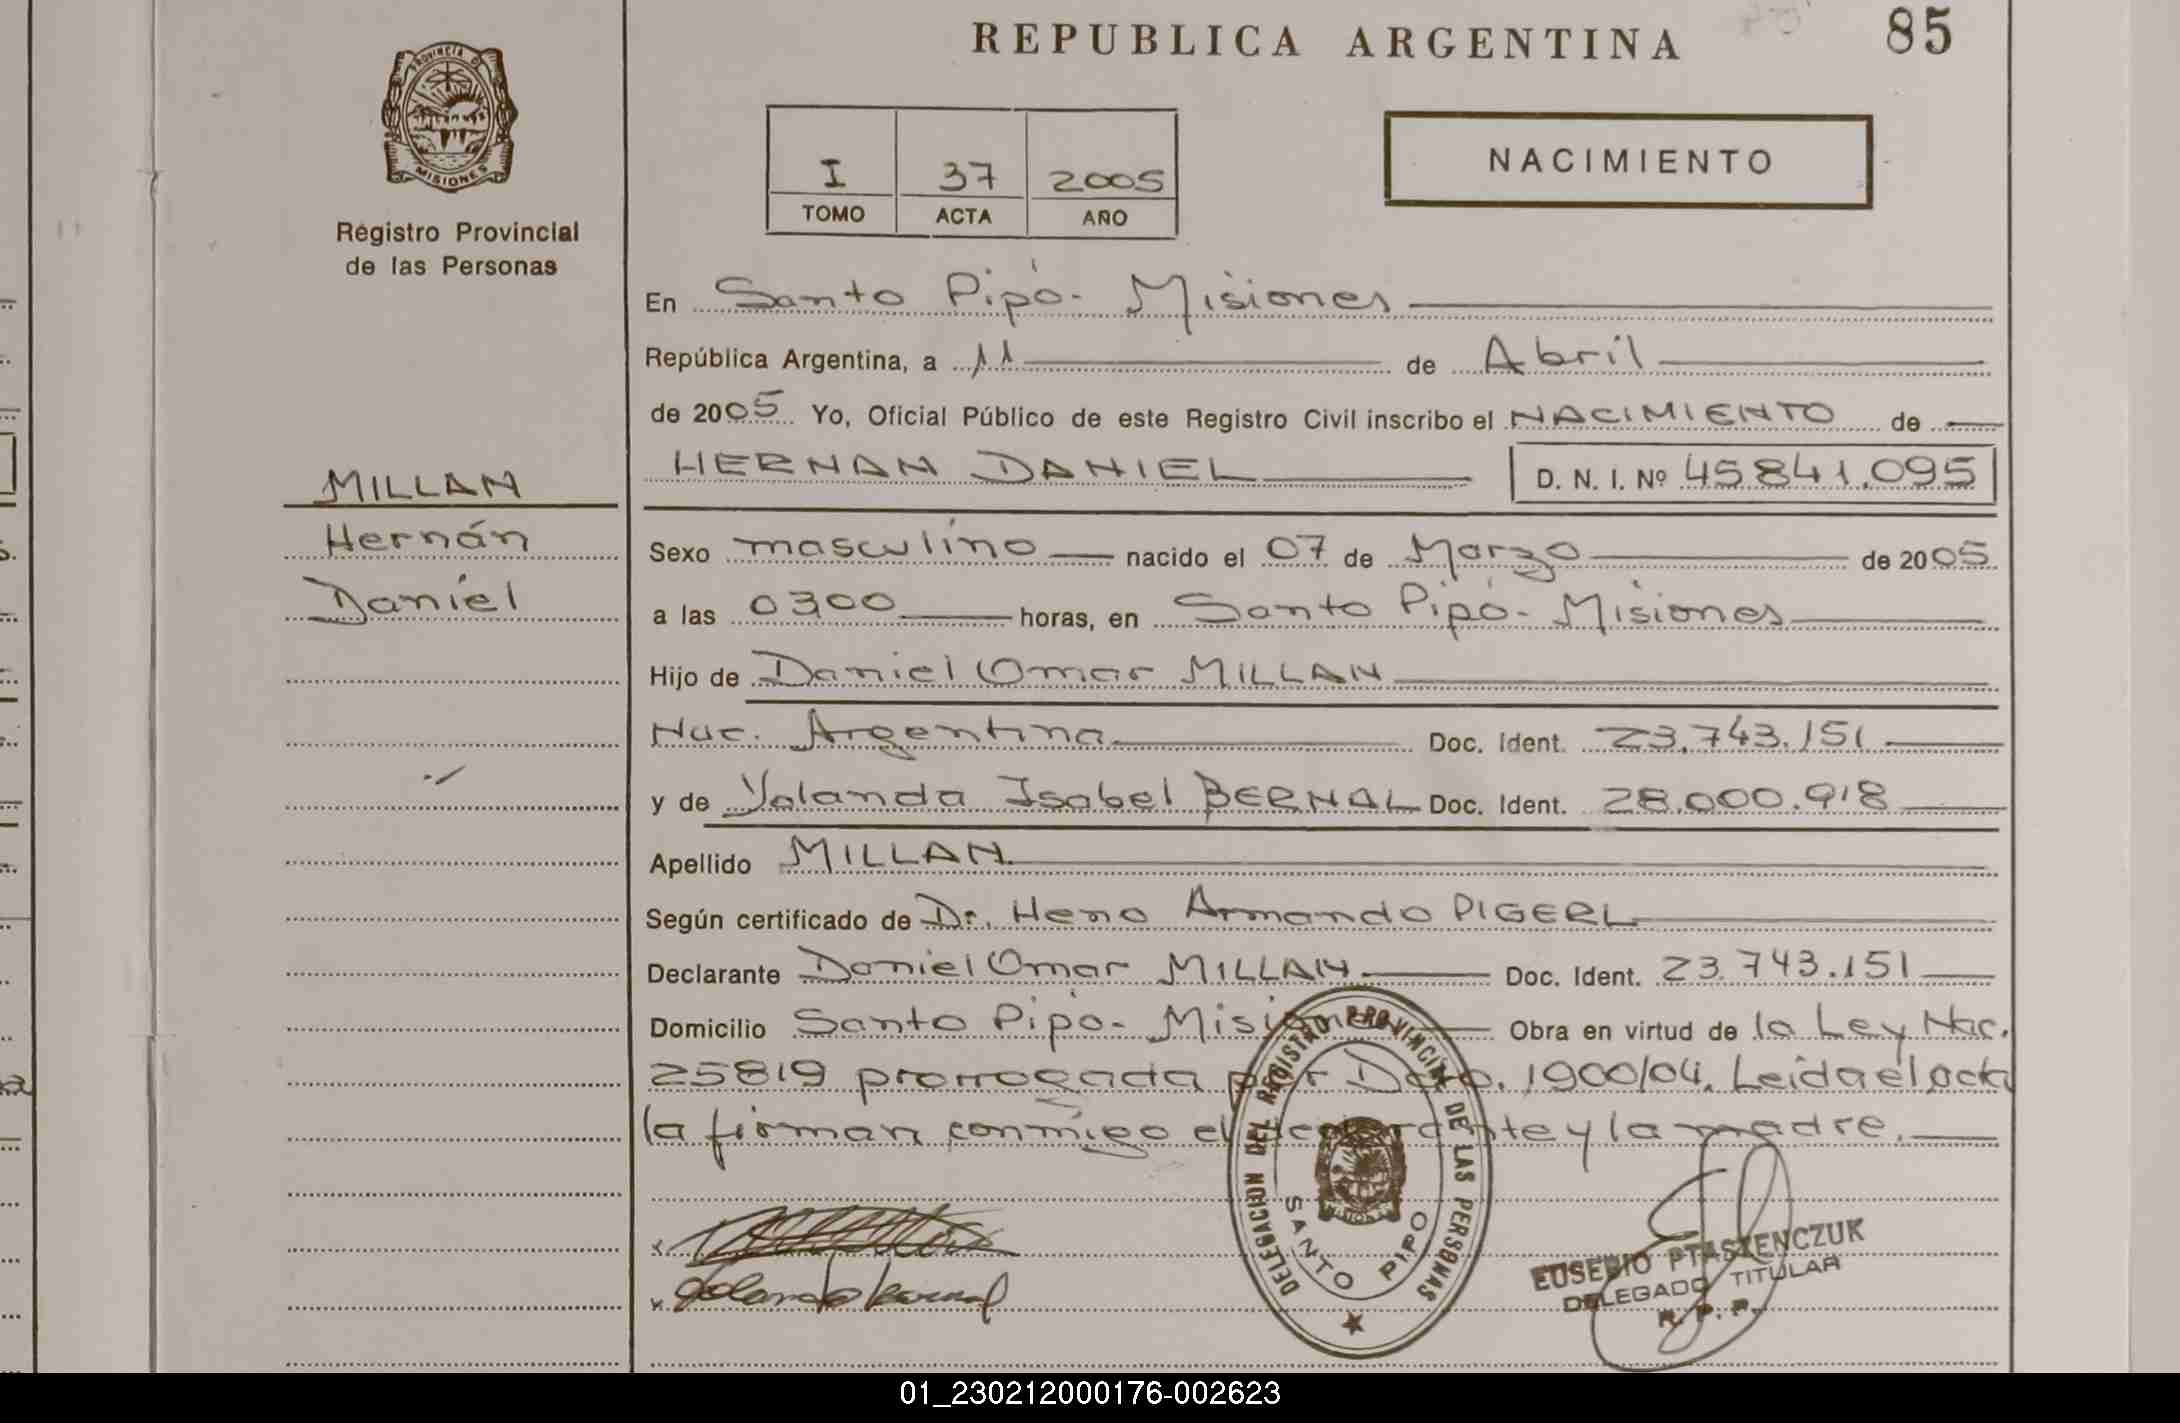 REPUBLICA ARGENTINA
85
PROVINCIA DE
MISIONES
Registro Provincial
de las Personas
I 37 2005
TOMO ACTA AÑO
NACIMIENTO
En Santo Pipó- Misiones
República Argentina, a 11 de Abril
de 2005 Yo, Oficial Público de este Registro Civil inscribo el NACIMIENTO de
HERNAN DANIEL D. N. I. Nº 45841.095
MILLAN
Hernán
Daniel
Sexo masculino nacido el 07 de Marzo de 2005
a las 03,00 horas, en Santo Pipó- Misiones
Hijo de Daniel Omar MILLAN
Nac. Argentina Doc. Ident. 23.743.151
y de Yolanda Isabel BERNAL Doc. Ident. 28.000.918
Apellido MILLAN
Según certificado de Dr. Heno Armando PIGERL
Declarante Daniel Omar MILLAN Doc. Ident. 23.743.151
Domicilio Santo Pipó- Misiones Obra en virtud de la Ley Nac.
25819 prorrogada por Dcto. 1900/04. Leída el acta
la firman conmigo el declarante y la madre.
DELEGACION DEL REGISTRO PROVINCIAL DE LAS PERSONAS
SANTO PIPO
Yolanda bernal
EUSEBIO PTASZENCZUK
DELEGADO TITULAR
R. P. P.
01_230212000176-002623